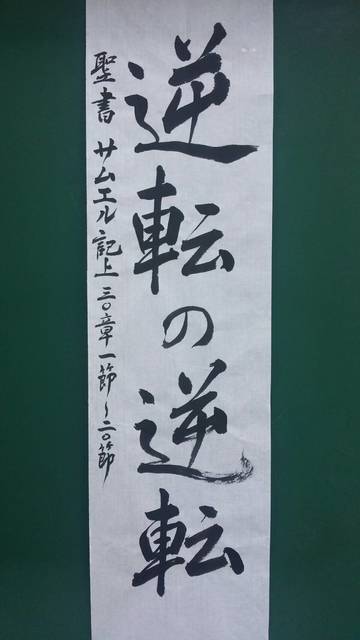 逆転の逆転
聖書 サムエル記上 三〇章一節〜二〇節